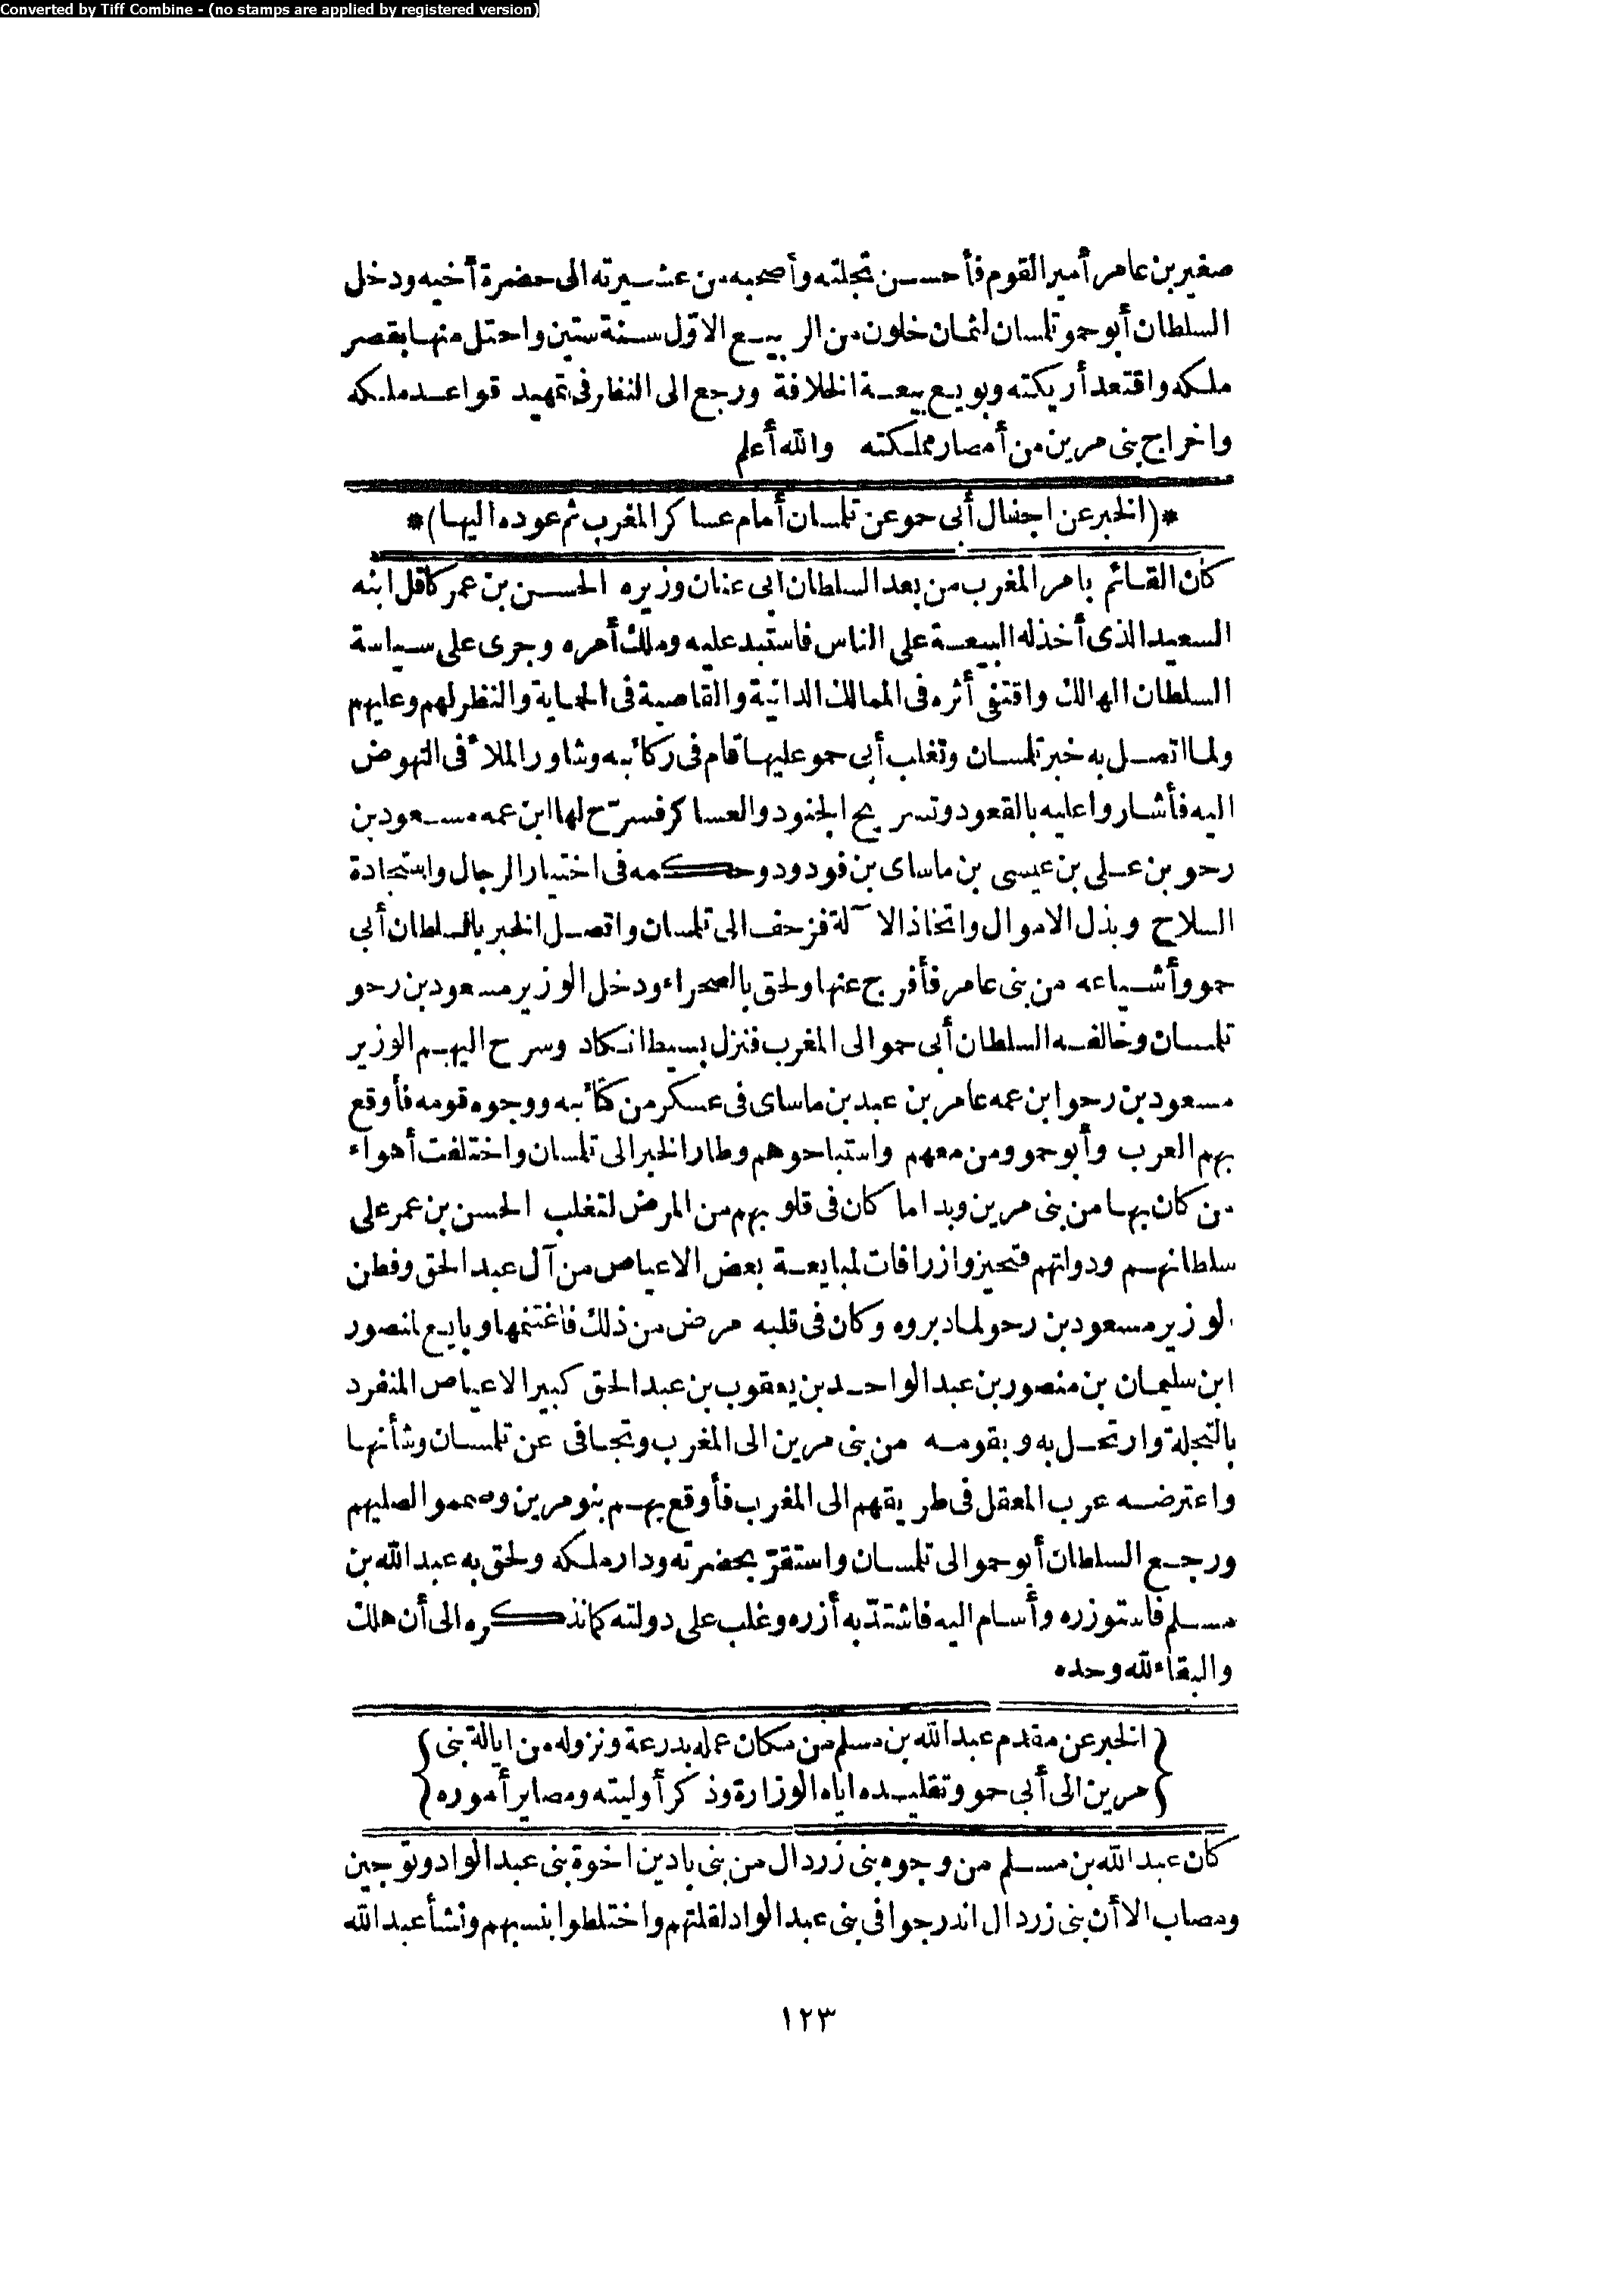 Converted by Tiff Combine - (no stamps are applied by registered version)
صغير بن عامر أمير القوم فأحسن تجلته وأصحبه من عشيرته الى حضرة أخيه ودخل
السلطان أبو حمو تلمسان لثمان خلون من الربيع الاوّل سنة ستين واحتل منها بقصر
ملكه واقتعد أريكته وبويع بيعة الخلافة ورجع الى النظر في تمهيد قواعد ملكه
واخراج بنى مرين من أمصار مملكته والله أعلم
*(الخبر عن اجفال أبى حمو عن تلمسان أمام عساكر المغرب ثم عوده اليها)*
كان القائم بامر المغرب من بعد السلطان ابى عنان وزيره الحسن بن عمر كافل ابنه
السعيد الذى أخذ له البيعة على الناس فاستبد عليه وملك أمره وجرى على سياسة
السلطان الهالك واقتفى أثره فى الممالك الدانية والقاصية فى الحماية والنظر لهم وعليهم
ولما اتصل به خبر تلمسان وتغلب أبى حمو عليها قام فى ركائبه وشاور الملأ فى النهوض
اليه فأشاروا عليه بالقعود وتسريح الجنود والعساكر فسرّح لها ابن عمه مسعود بن
رحو بن على بن عيسى بن ماساى بن فودود وحكمه فى اختيار الرجال واستجادة
السلاح وبذل الاموال واتخاذ الآلة فزحف الى تلمسان واتصل الخبر بالسلطان أبى
حمو وأشياعه من بنى عامر فأفرج عنها ولحق بالصحراء ودخل الوزير مسعود بن رحو
تلمسان وخالفه السلطان أبى حمو الى المغرب فنزل بسيط انكاد وسرح اليهم الوزير
مسعود بن رحو ابن عمه عامر بن عبد بن ماساى فى عسكر من كتائبه ووجوه قومه فأوقع
بهم العرب وأبو حمو ومن معهم واستباحوهم وطار الخبر الى تلمسان واختلفت أهواء
من كان بها من بنى مرين وبدا ما كان فى قلوبهم من المرض لتغلب الحسن بن عمر على
سلطانهم ودولتهم فتحيزوا زرافات لمبايعة بعض الاعياص من آل عبد الحق وفطن
الوزير مسعود بن رحو لما دبروه وكان فى قلبه مرض من ذلك فاغتنمها وبايع لمنصور
ابن سليمان بن منصور بن عبد الواحد بن يعقوب بن عبد الحق كبير الاعياص المنفرد
بالتجلة وارتحل به وبقومه من بنى مرين الى المغرب وتجافى عن تلمسان وشأنها
واعترضه عرب المعقل فى طريقهم الى المغرب فأوقع بهم بنو مرين وصمموا لطيهم
ورجع السلطان أبو حمو الى تلمسان واستقرّ بحضرته ودار ملكه ولحق به عبد الله بن
مسلم فاستوزره وأسام اليه فاشتدّ به أزره وغلب على دولته كما نذكره الى أن هلك
والبقاء لله وحده
{الخبر عن مقدم عبد الله بن مسلم من مكان عمله بدرعة ونزوله من ايالة بنى}
{مرين الى أبى حمو وتقليده اياه الوزارة وذكر أوليته ومصاير أموره}
كان عبد الله بن مسلم من وجوه بنى زردال من بنى يادين اخوة بنى عبد الواد وتوجين
ومصاب الا أن بنى زردال اندرجوا فى بنى عبد الواد لقلتهم واختلطوا بنسبهم ونشأ عبد الله
١٢٣